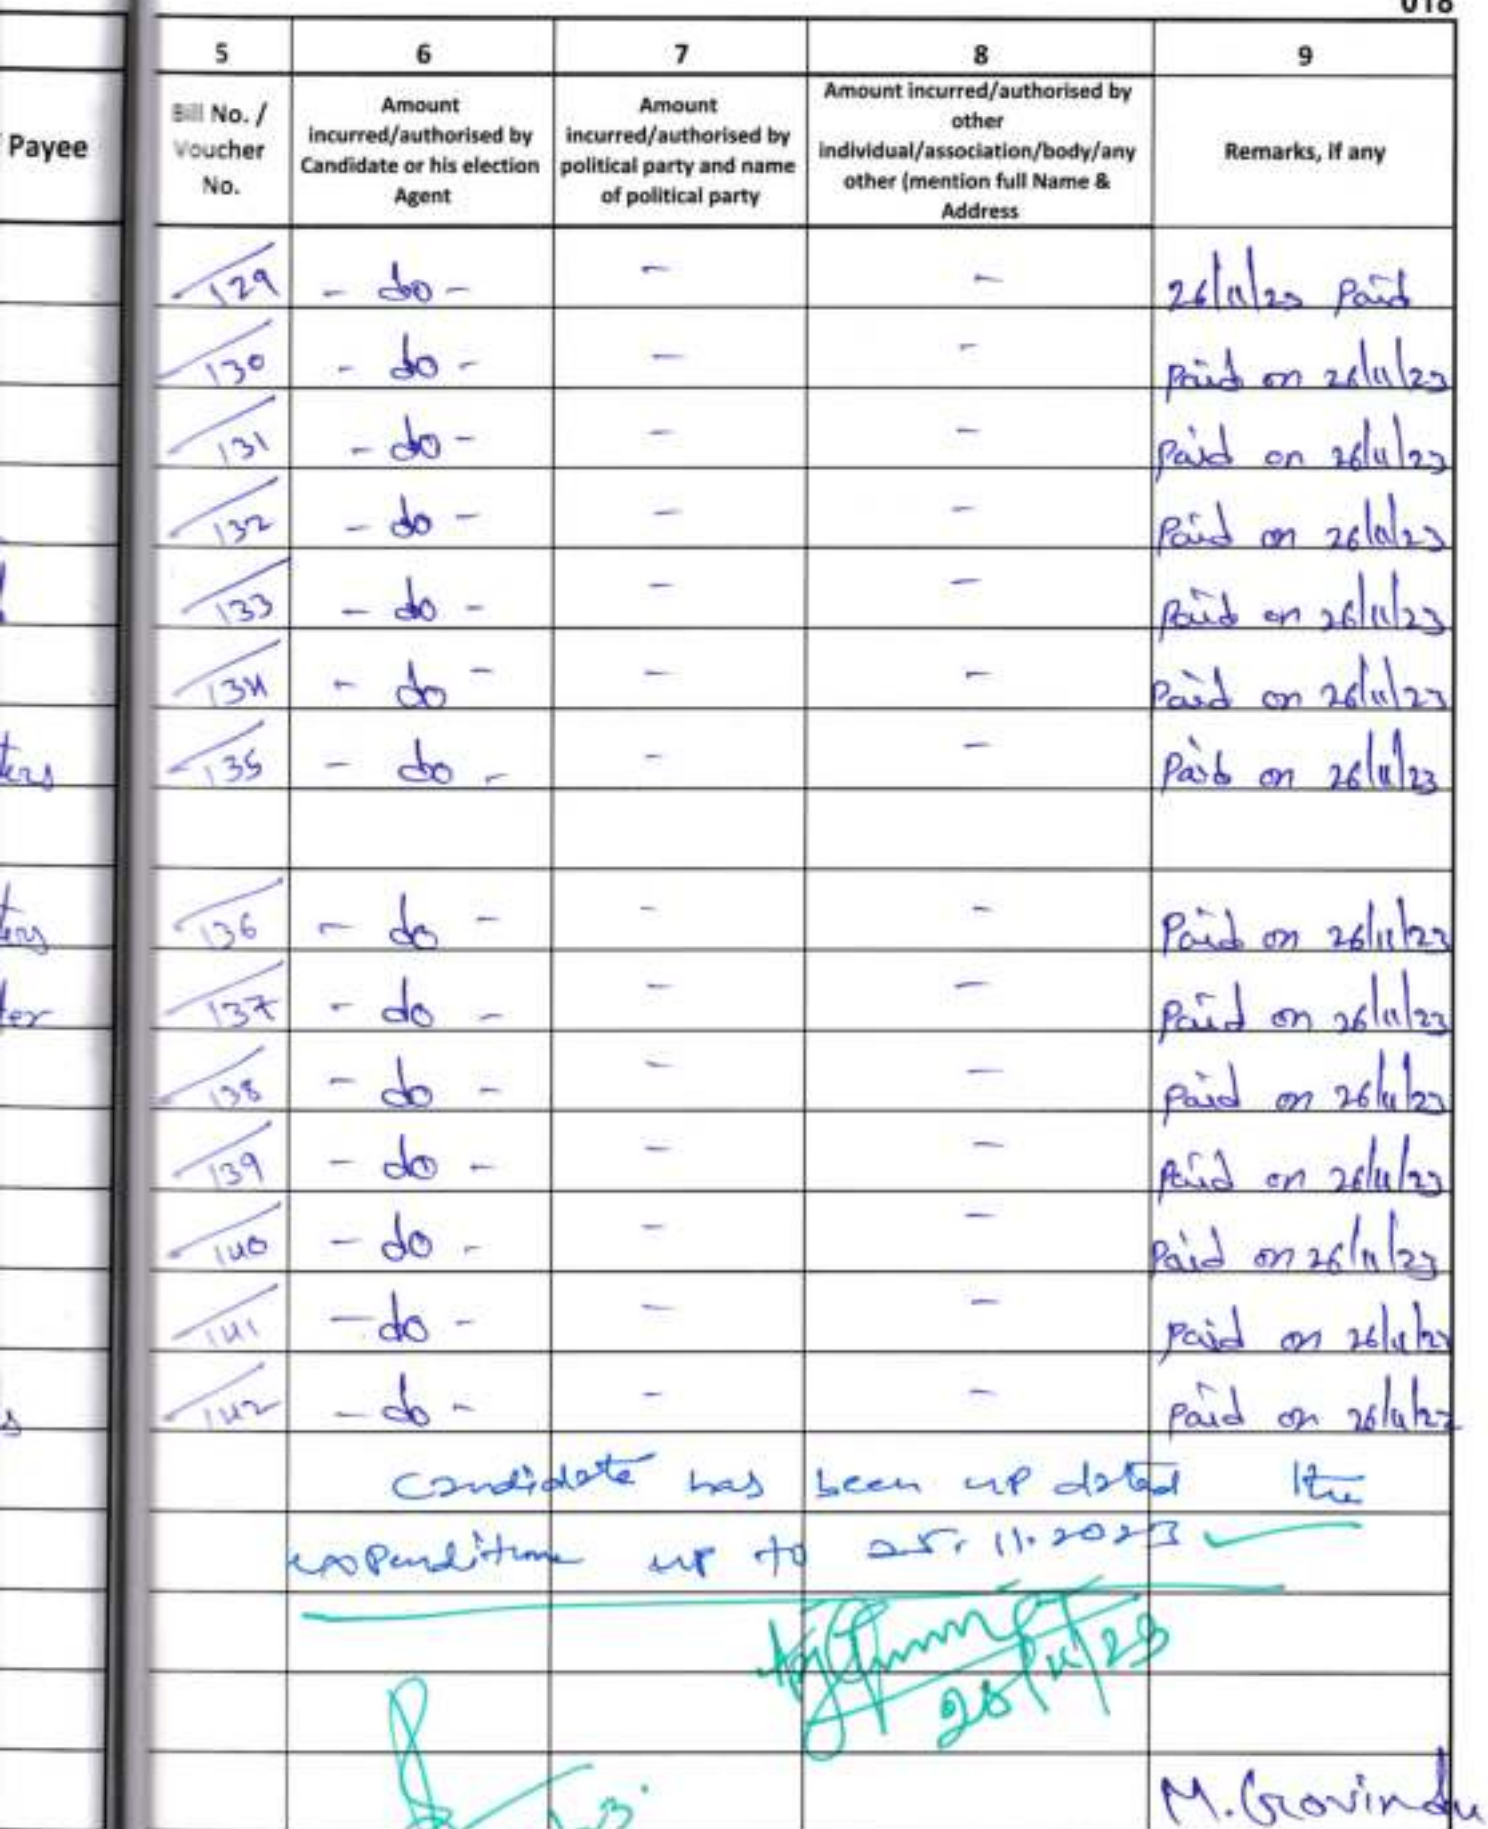 018
5 6 7 8 9
Payee
Bill No. / Voucher No.
Amount incurred/authorised by Candidate or his election Agent
Amount incurred/authorised by political party and name of political party
Amount incurred/authorised by other individual/association/body/any other (mention full Name & Address
Remarks, if any
129 - do - - - 26/11/23 Paid
130 - do - - - Paid on 26/11/23
131 - do - - - Paid on 26/11/23
132 - do - - - Paid on 26/11/23
133 - do - - - Paid on 26/11/23
134 - do - - - Paid on 26/11/23
135 - do - - - Paid on 26/11/23
136 - do - - - Paid on 26/11/23
137 - do - - - Paid on 26/11/23
138 - do - - - Paid on 26/11/23
139 - do - - - Paid on 26/11/23
140 - do - - - Paid on 26/11/23
141 - do - - - Paid on 26/11/23
142 - do - - - Paid on 26/11/23
Candidate has been up dated the
expenditure up to 25.11.2023
M. Govindu